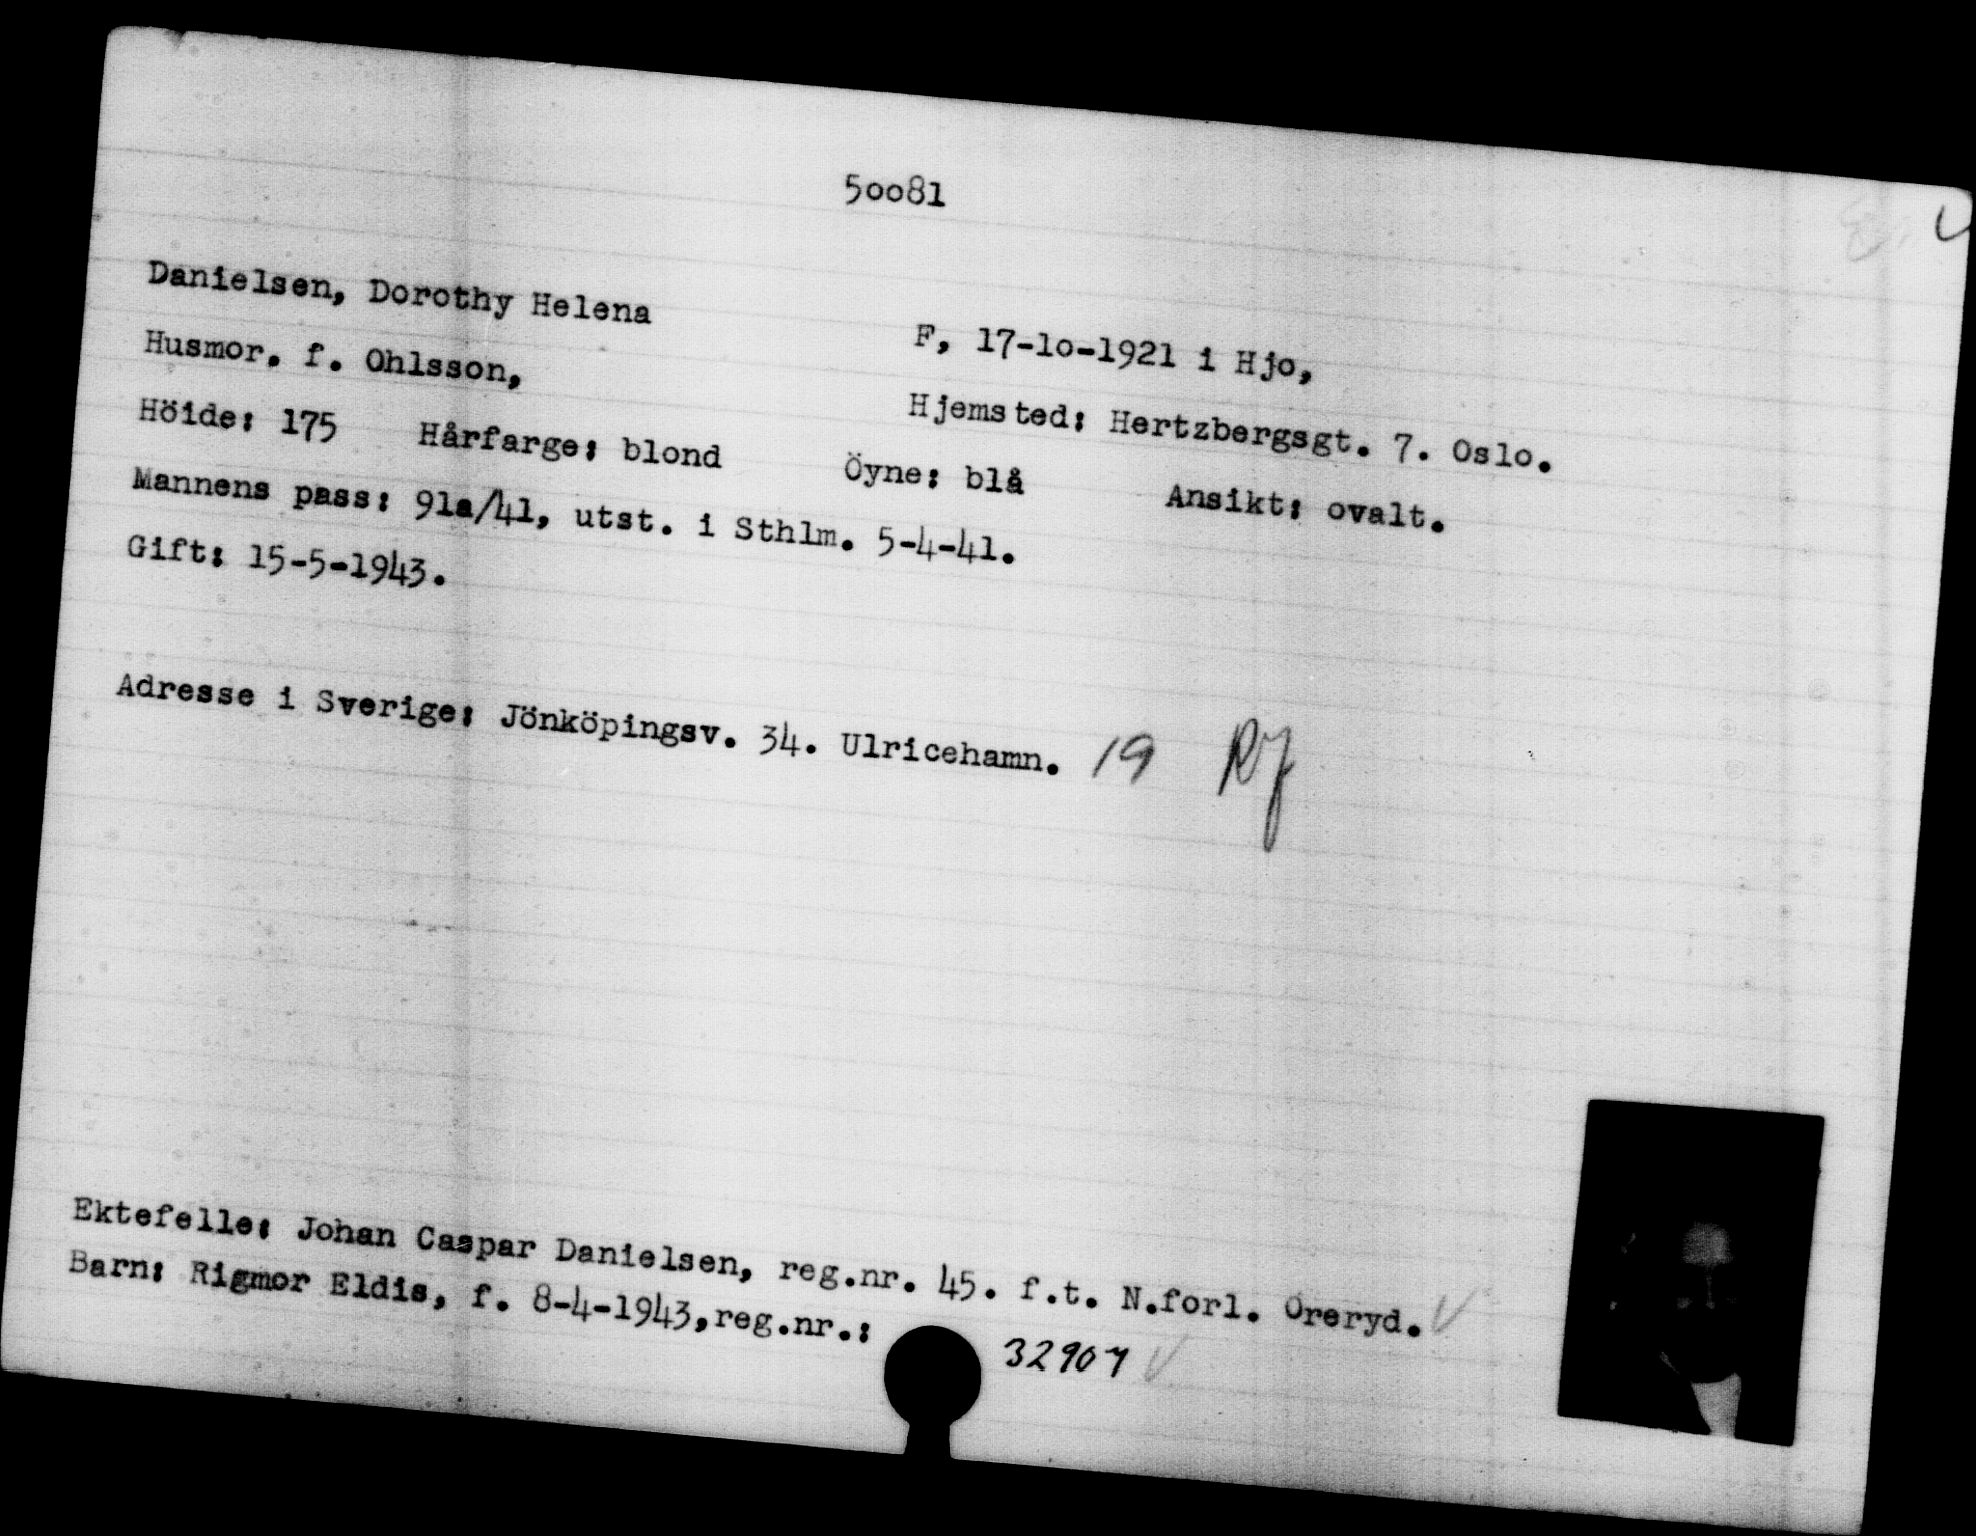 50081
Danielsen, Dorothy Helena
F, 17-10-1921 i Hjo,
Husmor. f. Ohlsson,
Hjemsted: Hertzbergsgt. 7. Oslo.
Höide: 175 Hårfarge: blond Öyne: blå Ansikt: ovalt.
Mannens pass: 91a/41, utst. i Sthlm. 5-4-41.
Gift: 15-5-1943.
Adresse i Sverige: Jönköpingsv. 34. Ulricehamn. 19
Ektefelle: Johan Caspar Danielsen, reg.nr. 45. f.t. N.forl. Öreryd.
Barn: Rigmor Eldis, f. 8-4-1943,reg.nr.: 32907